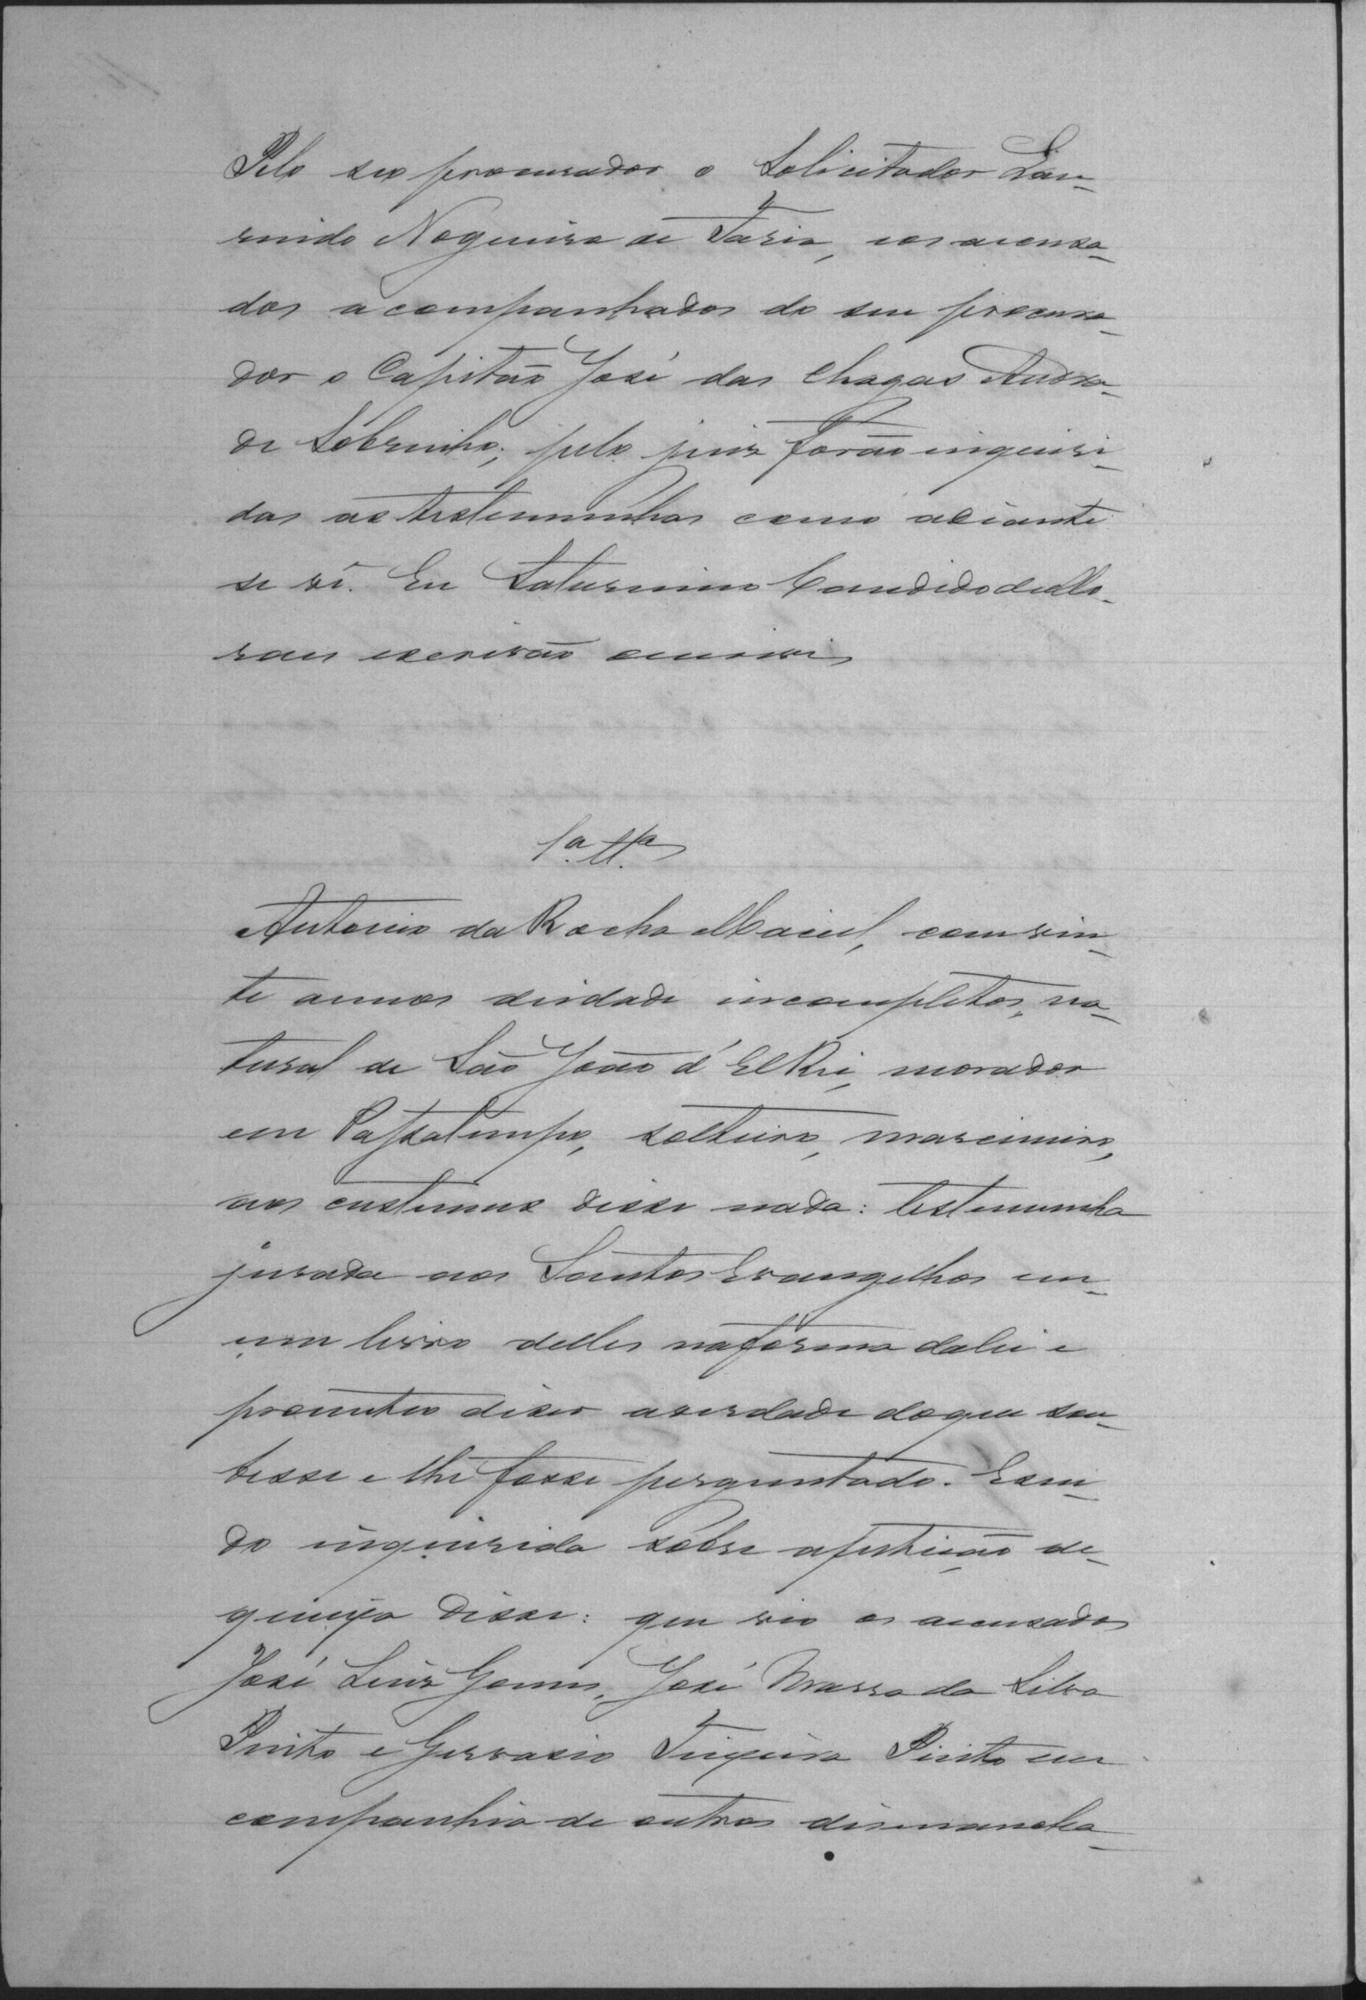 Pelo seo procurador o Solicitador Lau-
rindo Nogueira de Faria, e os accusa-
dos acompanhados do seu procura-
dor o Capitão José das Chagas Andra-
de Sobrinho; pelo juiz forão inquiri-
das as testemunhas como adiante
se vê. Eu Saturnino Candido de Mo-
raes escrivão escrevi
1ª. ttª.
Antonio da Rocha Maciel, com vin-
te annos de idade incompletos, na-
tural de São João d'El Rei, morador
em Passatempo, solteiro, marcineiro,
aos custumes disse nada: testemunha
jurada aos Santos Evangelhos em
um livro delles na forma da lei e
prometteo diser a verdade do que sou-
besse e lhe fosse perguntado. E sen-
do inquirida sobre a petição de
queixa disse: que vio os accusados
José Luiz Gomes, José da Silva
Pinto e Gervasio Teixeira Pinto em
companhia de outros desmancha-